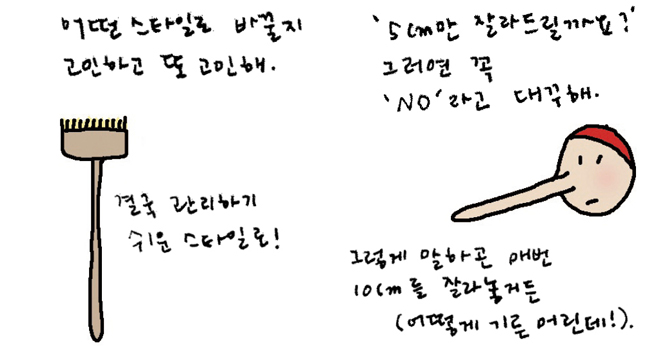 어떤 스타일로 바꿀지
고민하고 또 고민해.
결국 관리하기
쉬운 스타일로!
'5cm만 잘라드릴까요?'
그러면 꼭
'NO'라고 대꾸해.
그렇게 말하곤 매번
10cm를 잘라놓거든
(어떻게 기른 머린데!).